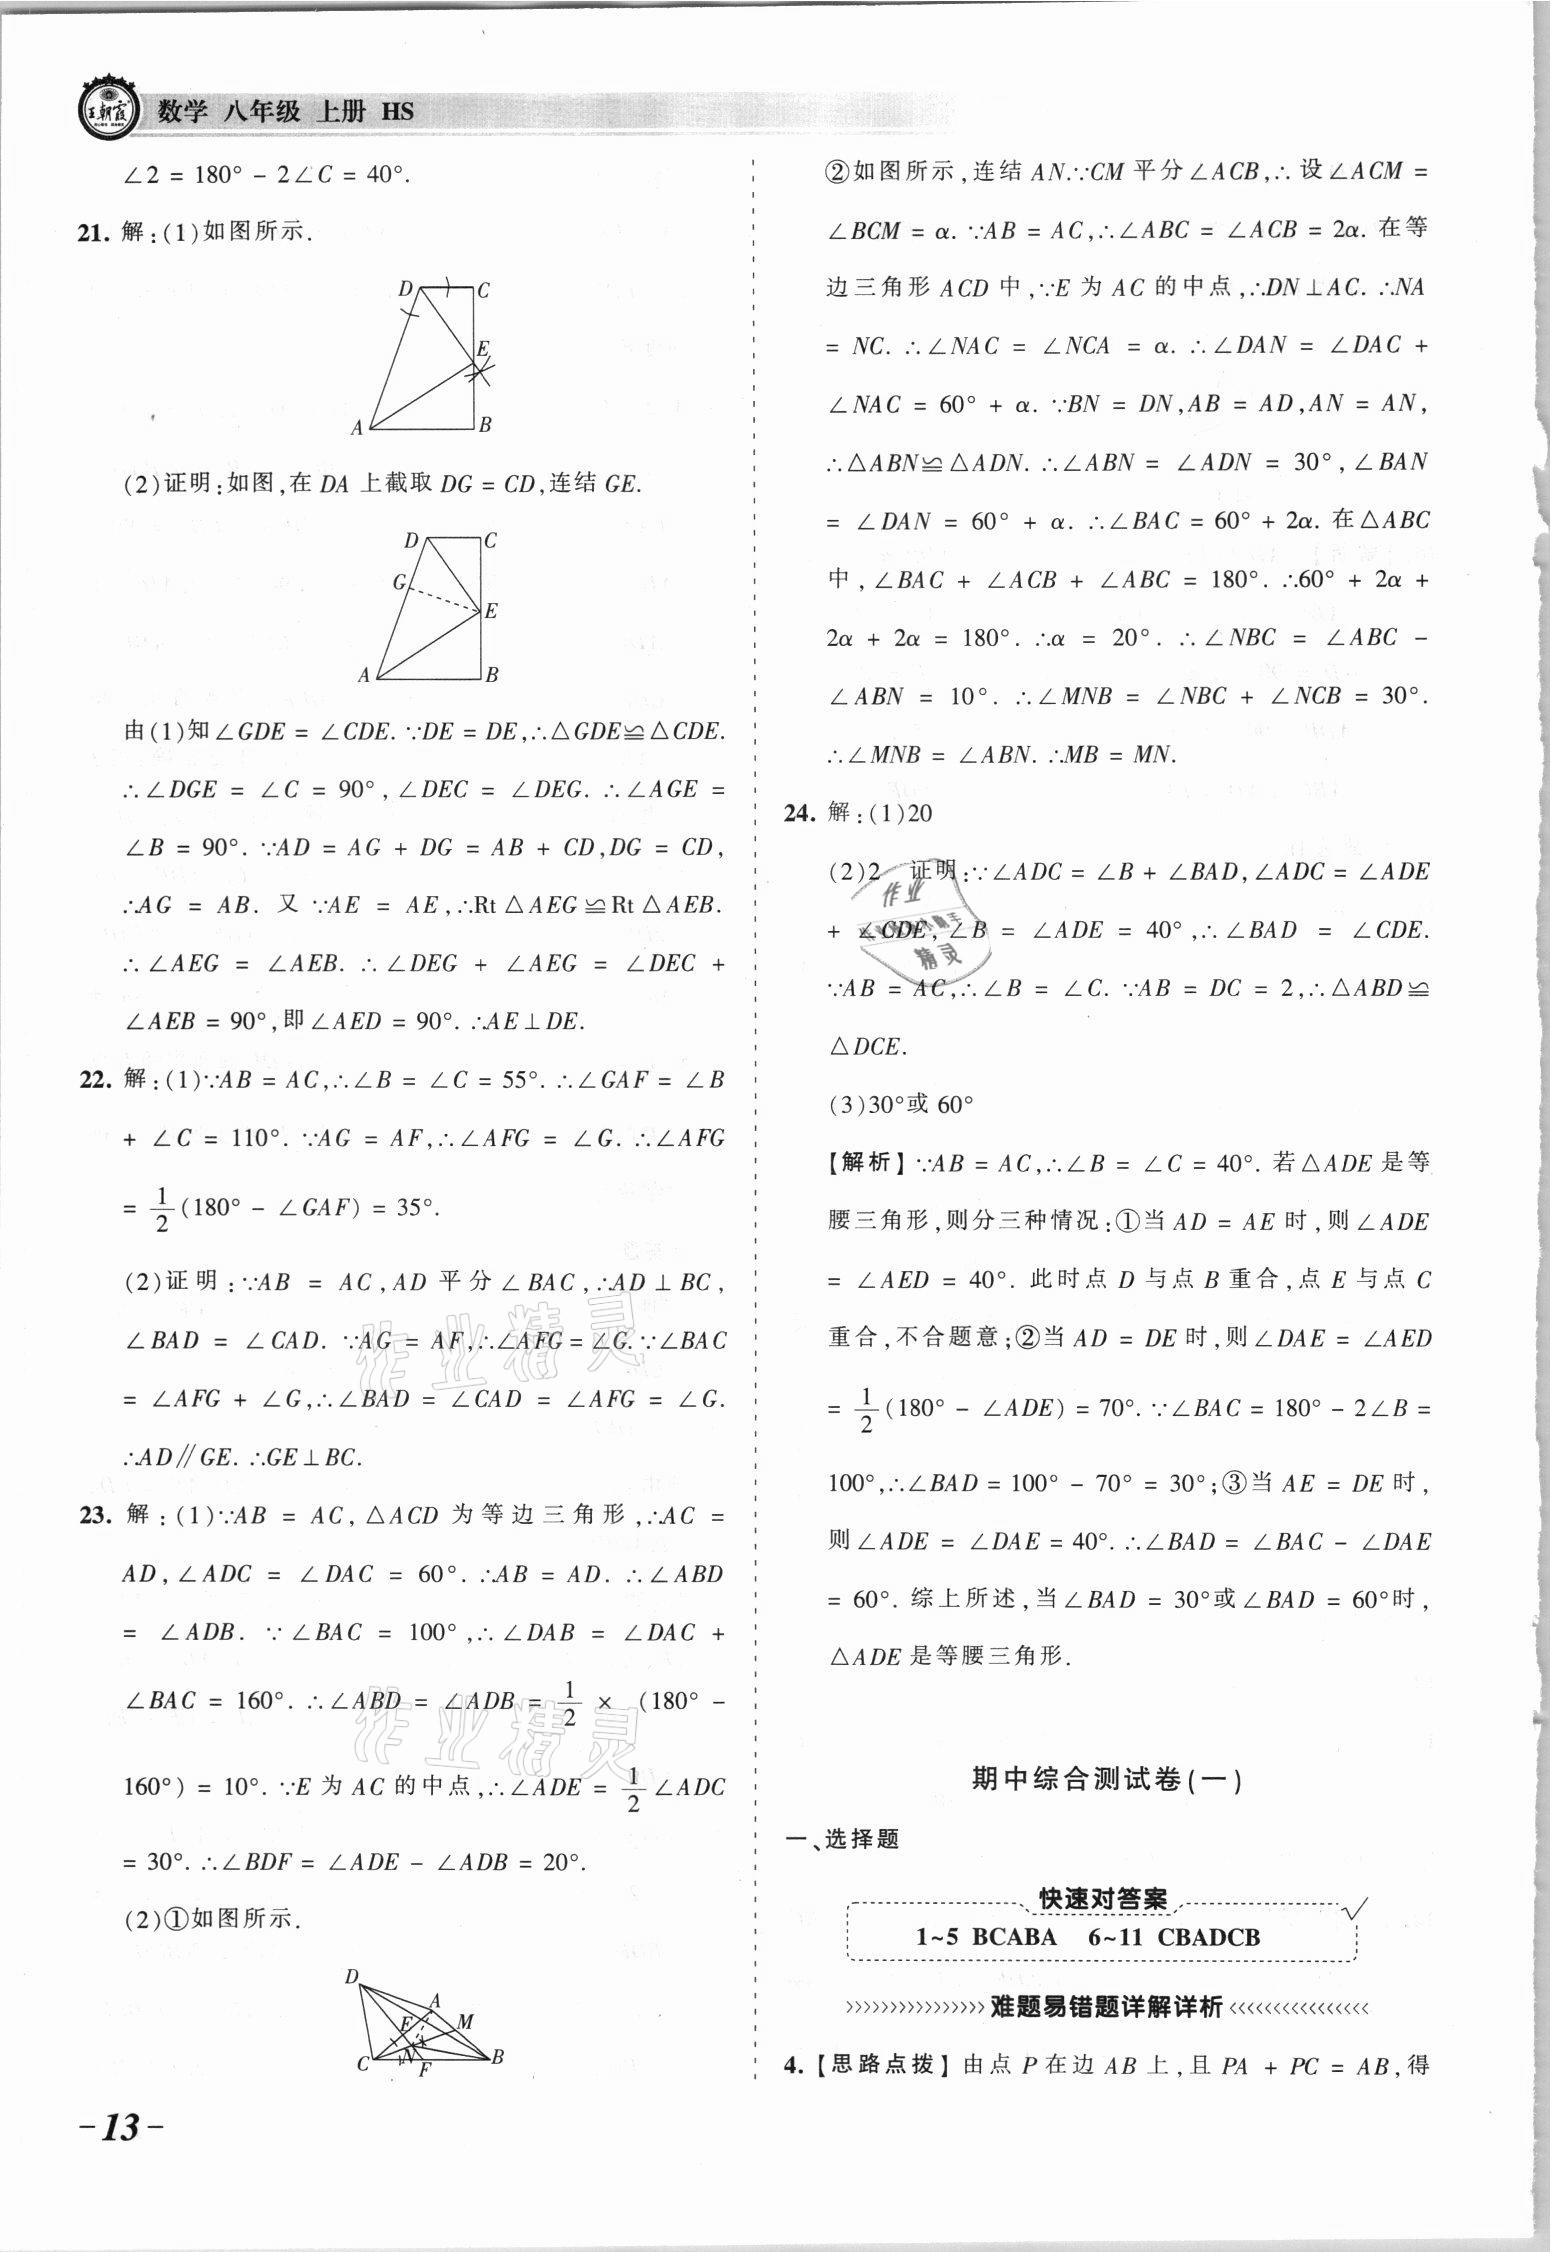 王朝霞
数学 八年级 上册 HS
∠2 = 180° - 2∠C = 40°.
21. 解:(1)如图所示.
D C
E
A B
(2)证明:如图,在 DA 上截取 DG = CD,连结 GE.
D C
G
E
A B
由(1)知∠GDE = ∠CDE. ∵DE = DE,∴△GDE≌△CDE.
∴∠DGE = ∠C = 90°,∠DEC = ∠DEG. ∴∠AGE =
∠B = 90°. ∵AD = AG + DG = AB + CD,DG = CD,
∴AG = AB. 又 ∵AE = AE,∴Rt△AEG≌Rt△AEB.
∴∠AEG = ∠AEB. ∴∠DEG + ∠AEG = ∠DEC +
∠AEB = 90°,即∠AED = 90°. ∴AE⊥DE.
22. 解:(1)∵AB = AC,∴∠B = ∠C = 55°. ∴∠GAF = ∠B
+ ∠C = 110°. ∵AG = AF,∴∠AFG = ∠G. ∴∠AFG
= 1/2(180° - ∠GAF) = 35°.
(2)证明:∵AB = AC,AD 平分∠BAC,∴AD⊥BC,
∠BAD = ∠CAD. ∵AG = AF,∴∠AFG = ∠G. ∵∠BAC
= ∠AFG + ∠G,∴∠BAD = ∠CAD = ∠AFG = ∠G.
∴AD∥GE. ∴GE⊥BC.
23. 解:(1)∵AB = AC,△ACD 为等边三角形,∴AC =
AD,∠ADC = ∠DAC = 60°. ∴AB = AD. ∴∠ABD
= ∠ADB. ∵∠BAC = 100°,∴∠DAB = ∠DAC +
∠BAC = 160°. ∴∠ABD = ∠ADB = 1/2 × (180° -
160°) = 10°. ∵E 为 AC 的中点,∴∠ADE = 1/2∠ADC
= 30°. ∴∠BDF = ∠ADE - ∠ADB = 20°.
(2)①如图所示.
D
A
E M
C N F B
-13-
②如图所示,连结 AN.∵CM 平分∠ACB,∴设∠ACM =
∠BCM = α. ∵AB = AC,∴∠ABC = ∠ACB = 2α. 在等
边三角形 ACD 中,∵E 为 AC 的中点,∴DN⊥AC. ∴NA
= NC. ∴∠NAC = ∠NCA = α. ∴∠DAN = ∠DAC +
∠NAC = 60° + α. ∵BN = DN,AB = AD,AN = AN,
∴△ABN≌△ADN. ∴∠ABN = ∠ADN = 30°,∠BAN
= ∠DAN = 60° + α. ∴∠BAC = 60° + 2α. 在△ABC
中,∠BAC + ∠ACB + ∠ABC = 180°. ∴60° + 2α +
2α + 2α = 180°. ∴α = 20°. ∴∠NBC = ∠ABC -
∠ABN = 10°. ∴∠MNB = ∠NBC + ∠NCB = 30°.
∴∠MNB = ∠ABN. ∴MB = MN.
24. 解:(1)20
(2)2 证明:∵∠ADC = ∠B + ∠BAD,∠ADC = ∠ADE
+ ∠CDE,∠B = ∠ADE = 40°,∴∠BAD = ∠CDE.
∵AB = AC,∴∠B = ∠C. ∵AB = DC = 2,∴△ABD≌
△DCE.
(3)30°或 60°
【解析】∵AB = AC,∴∠B = ∠C = 40°. 若△ADE 是等
腰三角形,则分三种情况:①当 AD = AE 时,则∠ADE
= ∠AED = 40°. 此时点 D 与点 B 重合,点 E 与点 C
重合,不合题意;②当 AD = DE 时,则∠DAE = ∠AED
= 1/2(180° - ∠ADE) = 70°. ∵∠BAC = 180° - 2∠B =
100°,∴∠BAD = 100° - 70° = 30°;③当 AE = DE 时,
则∠ADE = ∠DAE = 40°. ∴∠BAD = ∠BAC - ∠DAE
= 60°. 综上所述,当∠BAD = 30°或∠BAD = 60°时,
△ADE 是等腰三角形.
期中综合测试卷(一)
一、选择题
快速对答案
1~5 BCABA 6~11 CBADCB
》》》》》》》》难题易错题详解详析《《《《《《《《
4.【思路点拨】由点 P 在边 AB 上,且 PA + PC = AB,得
作业精灵
作业精灵
作业
精灵